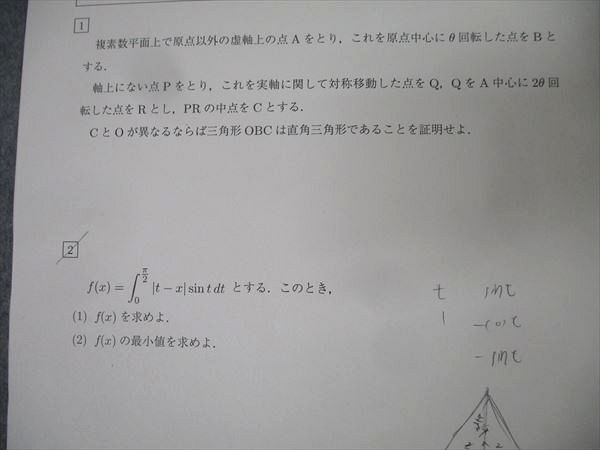 1
複素数平面上で原点以外の虚軸上の点 A をとり，これを原点中心に θ 回転した点を B と
する．
軸上にない点 P をとり，これを実軸に関して対称移動した点を Q，Q を A 中心に 2θ 回
転した点を R とし，PR の中点を C とする．
C と O が異なるならば三角形 OBC は直角三角形であることを証明せよ．
2
f(x) = ∫₀^{π/2} |t − x| sin t dt とする．このとき，
(1) f(x) を求めよ．
(2) f(x) の最小値を求めよ．
t sint
1 -cost
-sint